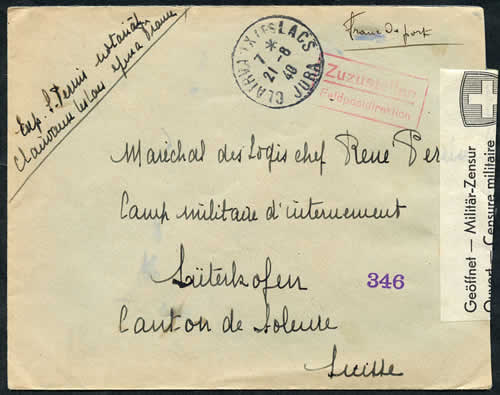 Exp. P. Perrin notariat
Clairvaux les Lacs Jura France
CLAIRVAUX LES LACS
7 *
21-8
40
JURA
Franc de port
Zuzustellen
Feldpostdirektion
Maréchal des Logis chef René Perrin
Camp militaire d'internement
Lüterkofen
346
Canton de Soleure
Suisse
Geöffnet — Militär-Zensur
Ouvert — Censure militaire